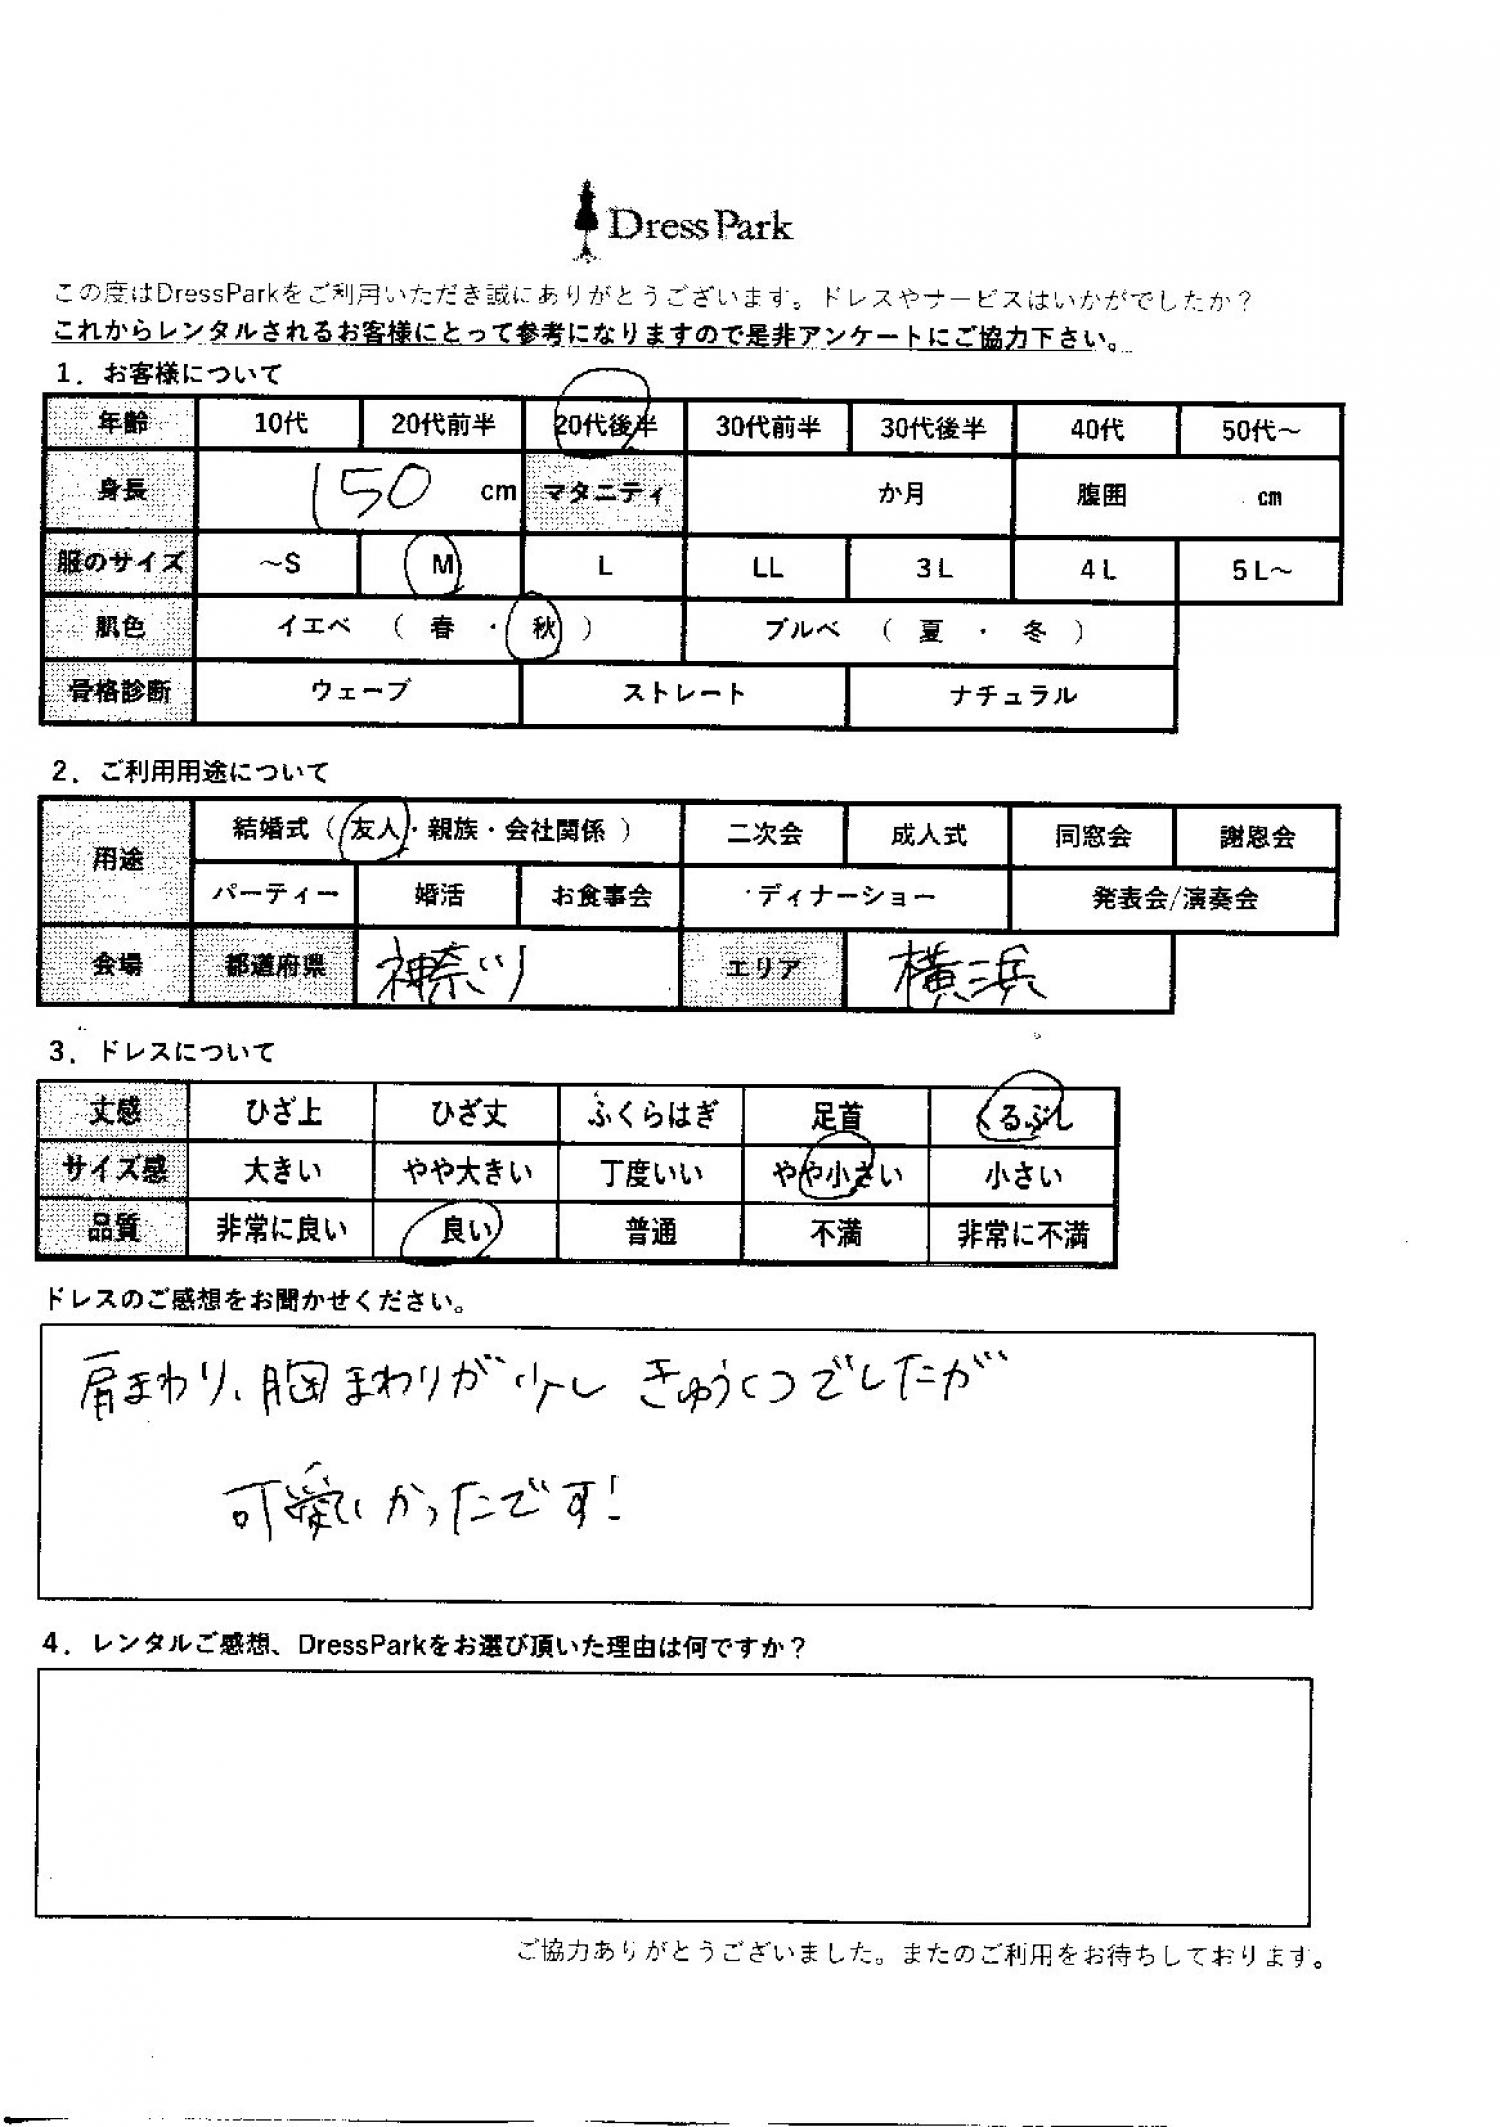 Dress Park
この度はDressParkをご利用いただき誠にありがとうございます。ドレスやサービスはいかがでしたか？
これからレンタルされるお客様にとって参考になりますので是非アンケートにご協力下さい。
1．お客様について
年齢 10代 20代前半 20代後半 30代前半 30代後半 40代 50代～
身長 150 cm マタニティ か月 腹囲 cm
服のサイズ ～S M L LL 3L 4L 5L～
肌色 イエベ （ 春 ・ 秋 ） ブルベ （ 夏 ・ 冬 ）
骨格診断 ウェーブ ストレート ナチュラル
2．ご利用用途について
用途 結婚式（友人・親族・会社関係） 二次会 成人式 同窓会 謝恩会
パーティー 婚活 お食事会 ディナーショー 発表会/演奏会
会場 都道府県 神奈川 エリア 横浜
3．ドレスについて
丈感 ひざ上 ひざ丈 ふくらはぎ 足首 くるぶし
サイズ感 大きい やや大きい 丁度いい やや小さい 小さい
品質 非常に良い 良い 普通 不満 非常に不満
ドレスのご感想をお聞かせください。
肩まわり、胸まわりが少し きゅうくつでしたが
可愛いかったです!
4．レンタルご感想、DressParkをお選び頂いた理由は何ですか？
ご協力ありがとうございました。またのご利用をお待ちしております。